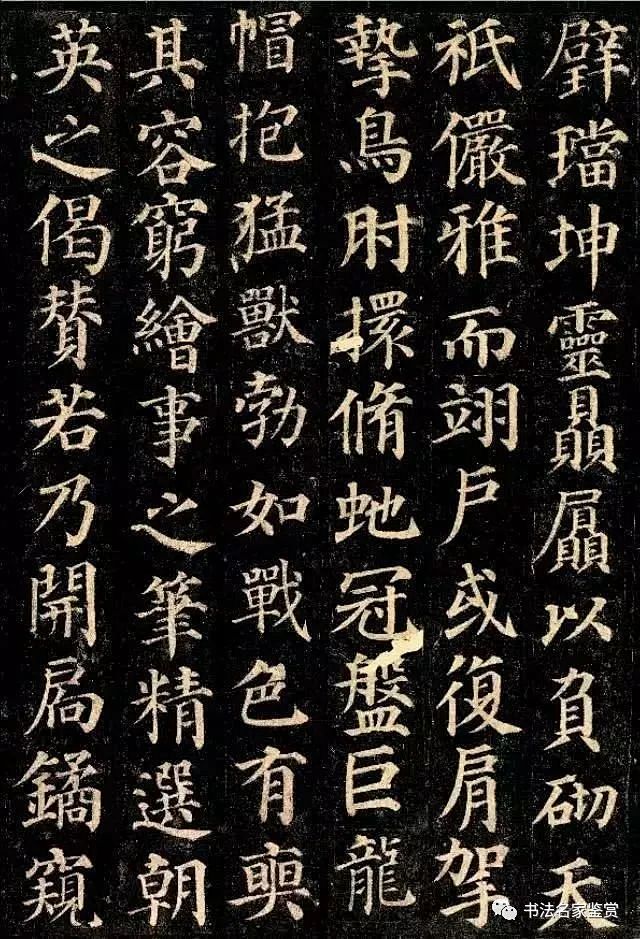 璧璫坤靈贔屭以負砌天
祇儼雅而翊戶或復肩挐
摯鳥肘擐脩虵冠盤巨龍
帽抱猛獸勃如戰色有奭
其容窮繪事之筆精選朝
英之偈贊若乃開扃鐍窺
书法名家鉴赏